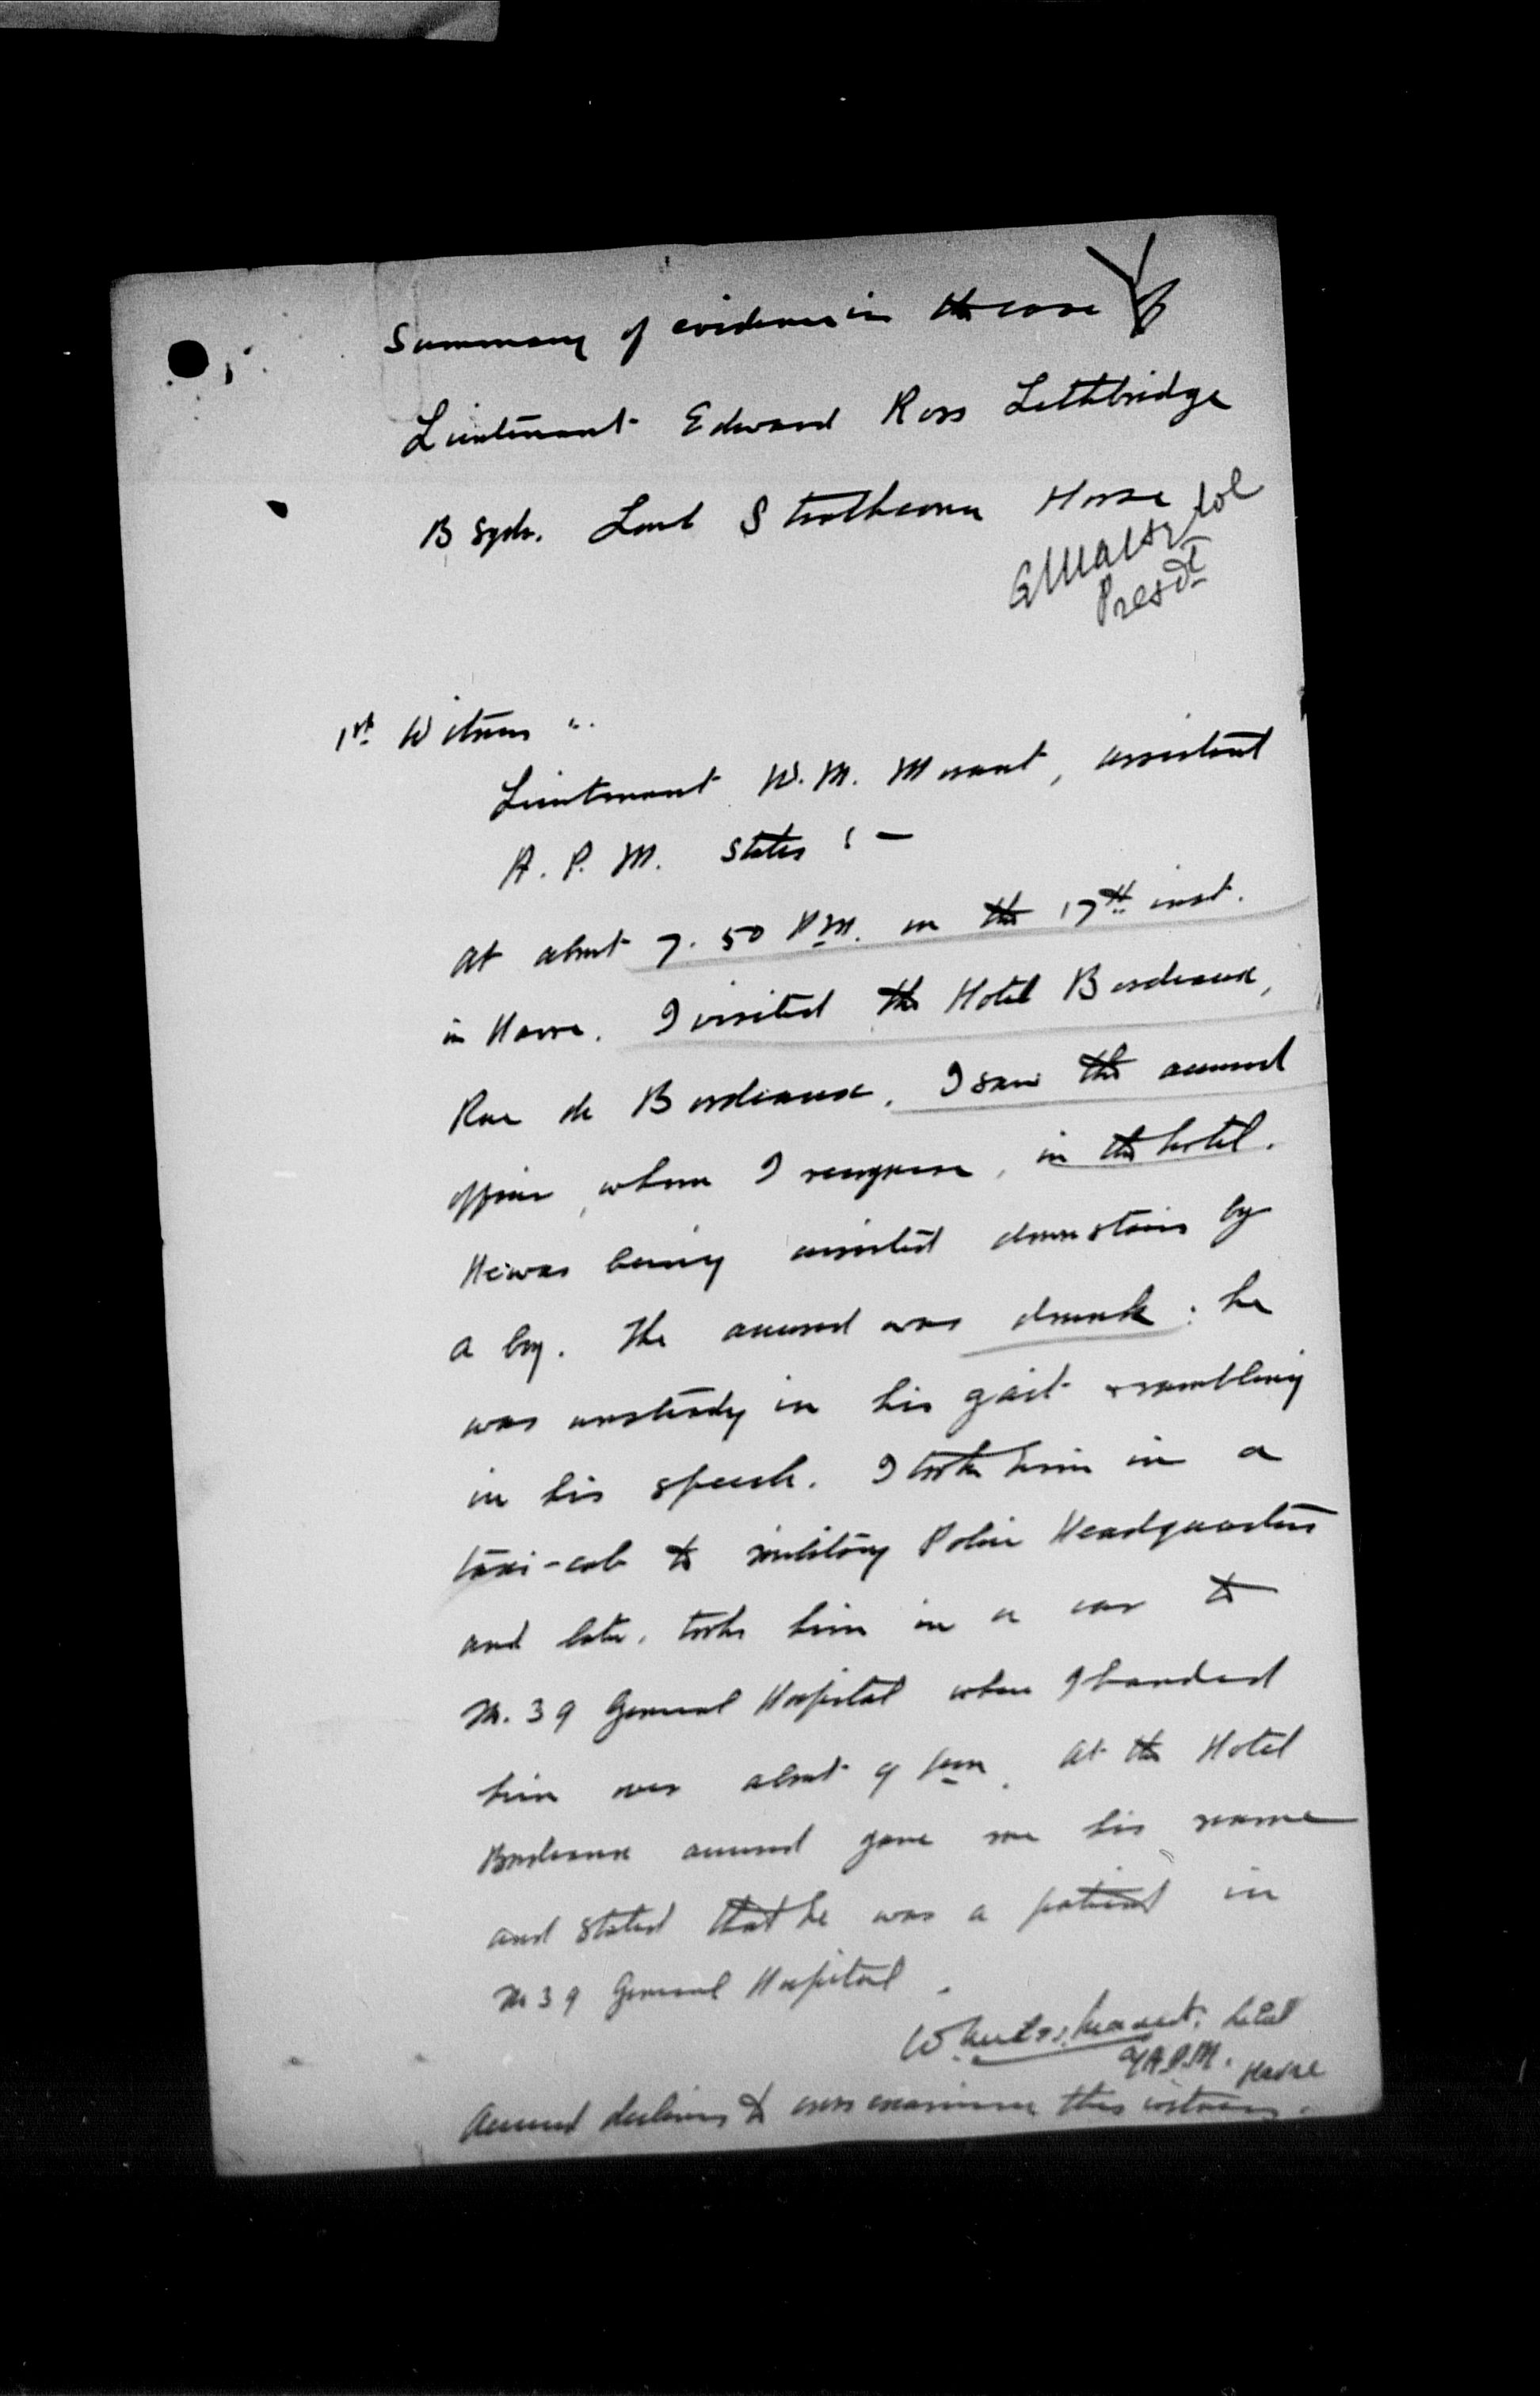 Y
Summary of evidence in the case of
Lieutenant Edward Ross Lethbridge
B Sqdn. Lord Strathcona Horse
Col
Presdt
1st Witness :-
Lieutenant W. M. Merant, assistant
A. P. M. states :-
At about 7.50 P.M. on the 17th inst.
in Havre. I visited the Hotel Bordeaux,
Rue de Bordeaux. I saw the accused
officer, whom I recognise, in the hotel.
He was being assisted downstairs by
a boy. The accused was drunk: he
was unsteady in his gait & rambling
in his speech. I took him in a
taxi-cab to military Police Headquarters
and later, took him in a car to
No. 39 General Hospital where I handed
him over about 9 pm. At the Hotel
Bordeaux accused gave me his name
and stated that he was a patient in
No 39 General Hospital.
W. Lieut
A.P.M. Havre
Accused declines to cross examine this witness.